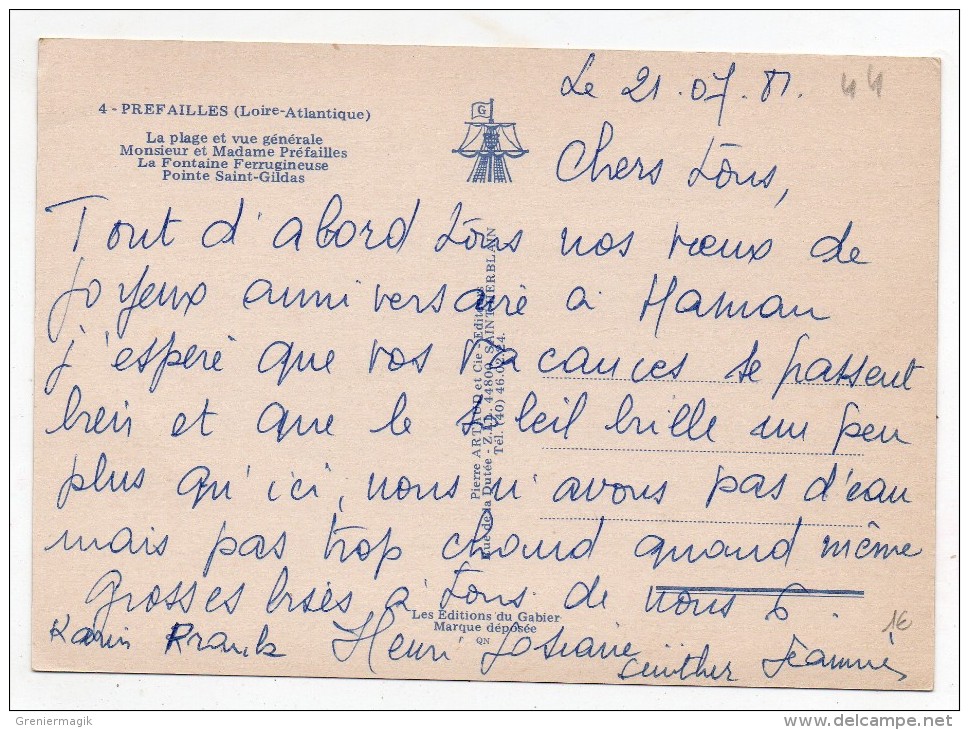 4 - PREFAILLES (Loire-Atlantique)
La plage et vue générale
Monsieur et Madame Préfailles
La Fontaine Ferrugineuse
Pointe Saint-Gildas
G
Le 21.07.81.
44
Chers Tous,
Tout d'abord Tous nos vœux de
Joyeux anniversaire à Maman
j'espère que vos vacances se passent
bien et que le soleil brille un peu
plus qu'ici, nous n'avons pas d'eau
mais pas trop chaud quand même
Grosses bises à Tous de nous 6.
Karin Franck Henri Josiane Günther Jeannine
1€
Pierre ARTAUD et Cie - Editeurs
Rue de la Dutée - Z.I.L. 44800 SAINT-HERBLAIN
Tél. (40) 46.02.24.
Les Editions du Gabier
Marque déposée
QN
Greniermagik
www.delcampe.net